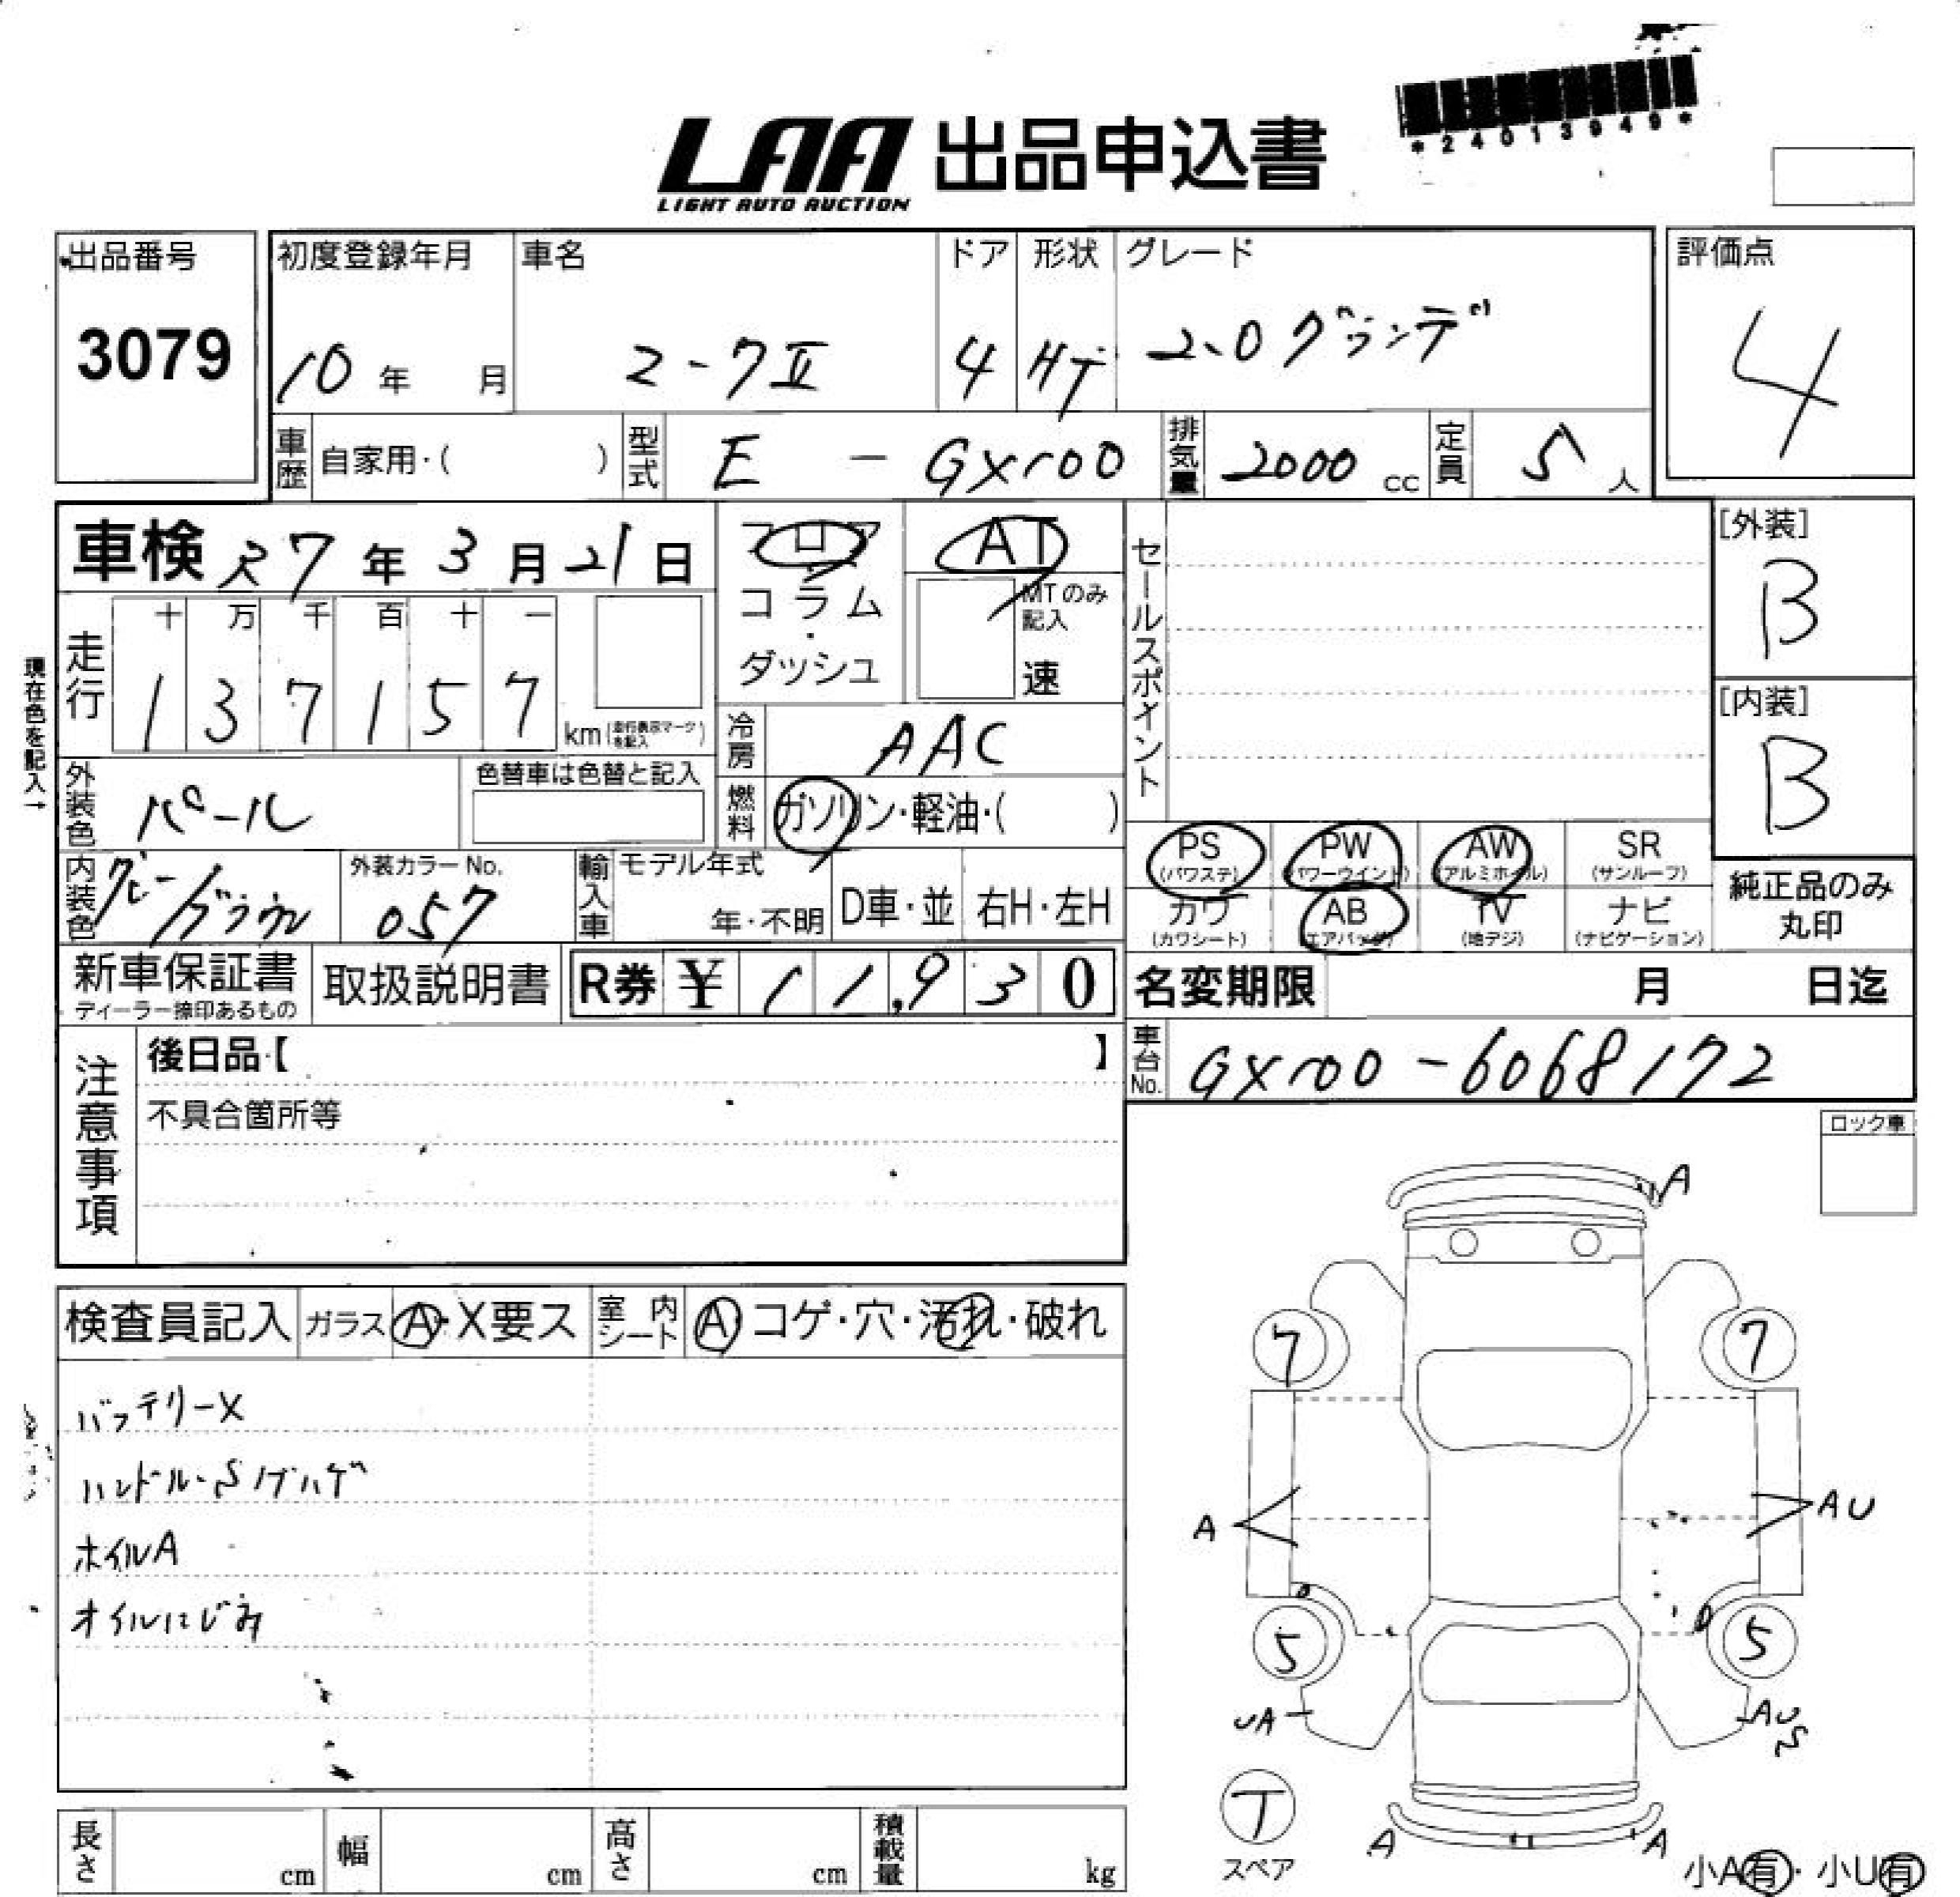 LAA 出品申込書
LIGHT AUTO AUCTION
*24013949*
出品番号
3079
初度登録年月
10年 月
車名
マークⅡ
ドア
4
形状
HT
グレード
2.0グランデ
評価点
4
車歴 自家用・( )
型式 E - GX100
排気量 2000 cc
定員 5 人
車検 R7年3月21日
フロア
・
コラム
・
ダッシュ
AT
MTのみ
記入
速
セールスポイント
[外装]
B
[内装]
B
現在色を記入→
走行
十 万 千 百 十 一
1 3 7 1 5 7
km (走行表示マークを記入)
冷房 AAC
燃料 ガソリン・軽油・( )
外装色 パール
色替車は色替と記入
内装色 グレー/ブラウン
外装カラーNo.
057
輸入車
モデル年式
年・不明
D車・並
右H・左H
PS
(パワステ)
PW
(パワーウインド)
AW
(アルミホイル)
SR
(サンルーフ)
カワ
(カワシート)
AB
(エアバッグ)
TV
(地デジ)
ナビ
(ナビゲーション)
純正品のみ
丸印
新車保証書
ディーラー捺印あるもの
取扱説明書
R券 ¥ 11,930
名変期限 月 日迄
車台No. GX100-6068172
注意事項
後日品【 】
不具合箇所等
ロック車
検査員記入
ガラス A・X要ス
室内シート A コゲ・穴・汚れ・破れ
バッテリーX
ハンドル・Sノブハゲ
ホイルA
オイルにじみ
A
7
7
A
AU
5
5
UA
AUS
T
スペア
A
A
小A有・小U有
長さ cm
幅 cm
高さ cm
積載量 kg